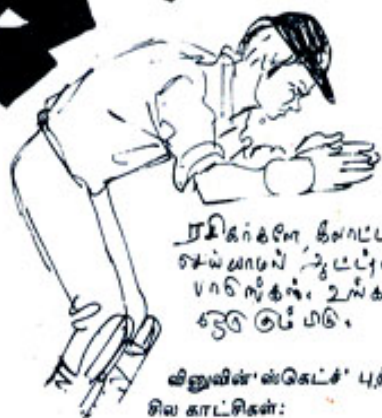 ரசிகர்களே, கலாட்டா
செய்யாமல் ஆட்டத்
பாருங்கள். உங்க
ஒரு கும்பிடு.
வினுவின் 'ஸ்கெட்ச்' பு
சில காட்சிகள்: